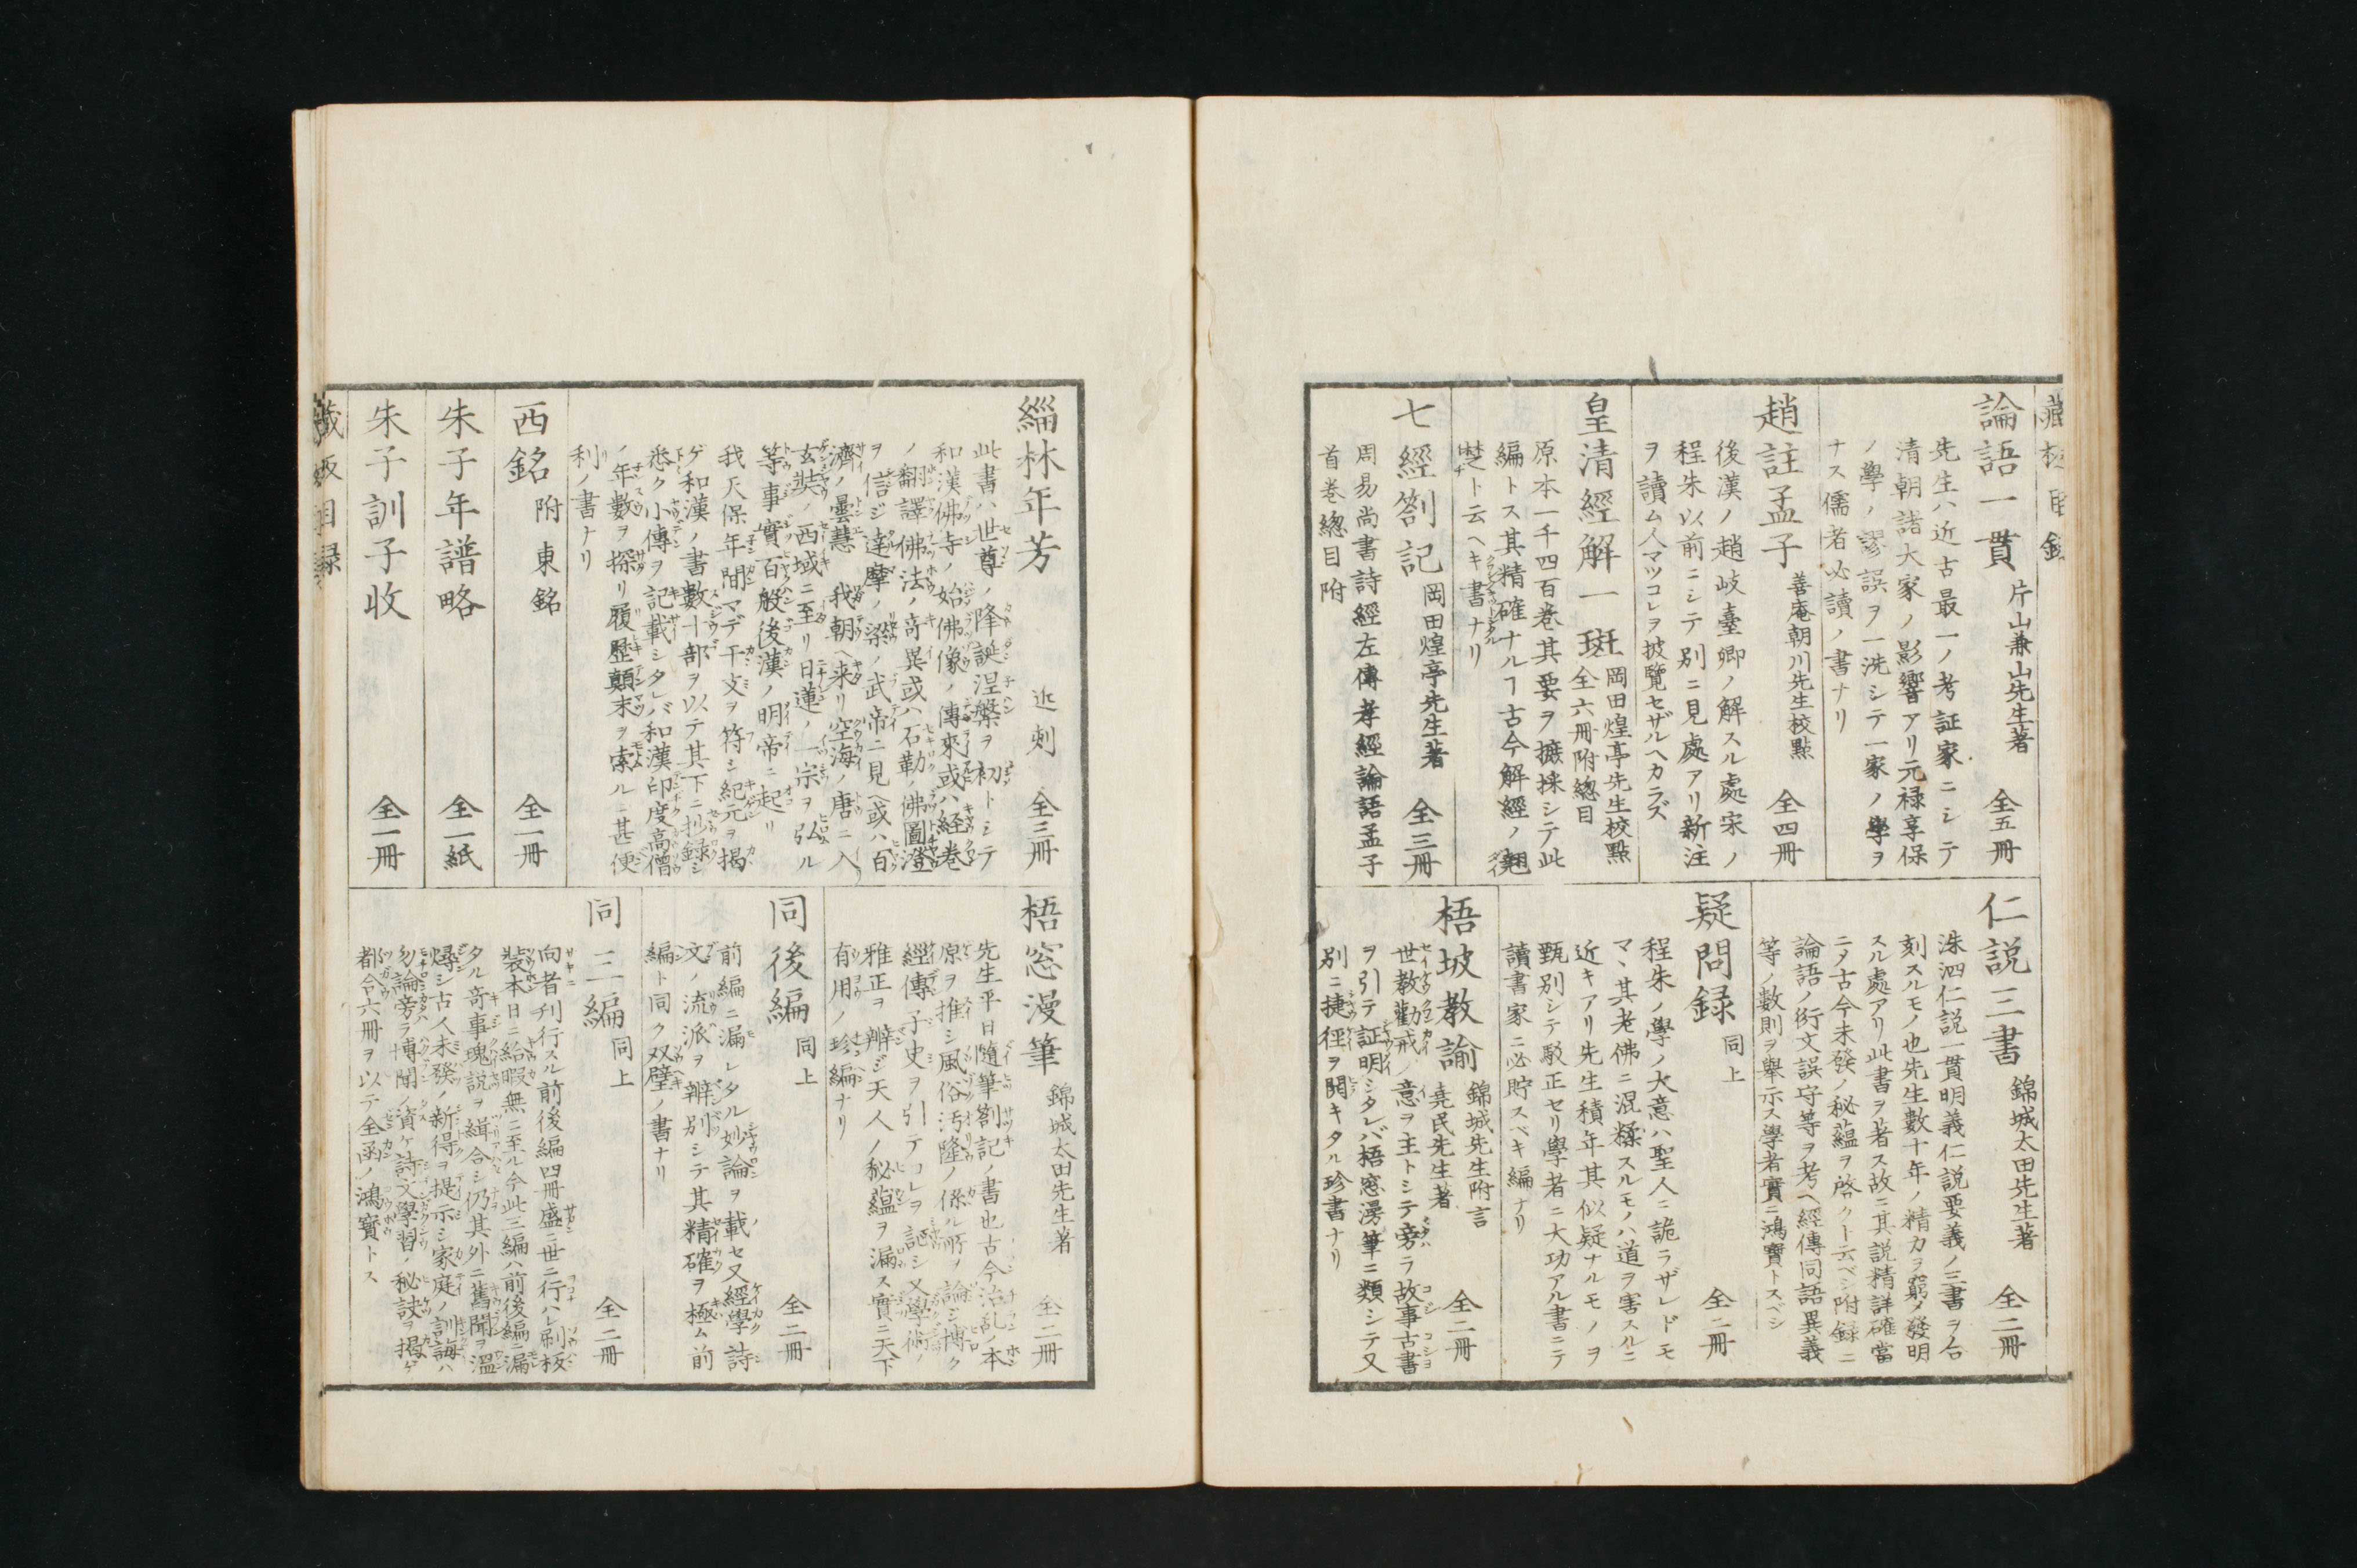 論語一貫 片山兼山先生著 全五冊
先生ハ近古最一ノ考証家ニシテ
清朝諸大家ノ影響アリ元禄享保
ノ學ノ謬誤ヲ一洗シテ一家ノ學ヲ
ナス儒者必讀ノ書ナリ
趙註孟子 善庵朝川先生校點 全四冊
後漢ノ趙岐臺卿ノ解スル處宋ノ
程朱以前ニシテ別ニ見處アリ新注
ヲ讀ム人マツコレヲ披覽セザルヘカラズ
皇清經解一斑 岡田煌亭先生校點 全六冊附總目
原本一千四百巻其要ヲ摭採シテ此
編トス其精確ナルヿ古今解經ノ翹
楚ト云ヘキ書ナリ
七經劄記 岡田煌亭先生著 全三冊
周易尚書詩經左傳孝經論語孟子
首巻總目附
仁説三書 錦城太田先生著 全二冊
洙泗仁説一貫明義仁説要義ノ三書ヲ合
刻スルモノ也先生數十年ノ精力ヲ窮メ發明
スル處アリ此書ヲ著ス故ニ其説精詳確當
ニメ古今未發ノ秘蘊ヲ啓クト云ベシ附録ニ
論語ノ衍文誤字等ヲ考ヘ經傳同語異義
等ノ數則ヲ舉示ス學者實ニ鴻寳トスベシ
疑問録 同上 全二冊
程朱ノ學ノ大意ハ聖人ニ詭ラザレドモ
マヽ其老佛ニ混糅スルモノハ道ヲ害スルニ
近キアリ先生積年其似疑ナルモノヲ
甄別シテ駁正セリ學者ニ大功アル書ニテ
讀書家ニ必貯スベキ編ナリ
梧坡教諭 錦城先生附言 堯民先生著 全二冊
世教勸戒ノ意ヲ主トシテ旁ラ故事古書
ヲ引テ証明シタレバ梧窓漫筆ニ類シテ又
別ニ捷徑ヲ開キタル珍書ナリ
緇林年芳 近刻 全三冊
此書ハ世尊ノ降誕涅槃ヲ初トシテ
和漢佛寺ノ始佛像ノ傳來或ハ経巻
ノ翻譯佛法ノ奇異或ハ石勒ノ佛圖澄
ヲ信ジ達摩ノ梁ノ武帝ニ見ヘ或ハ百
濟ノ曇慧 我朝ヘ来リ空海ノ唐ニ入
玄奘ノ西域ニ至リ日蓮ノ一宗ヲ弘ル
等事實百般後漢ノ明帝ニ起リ
我天保年間マデ干支ヲ符シ紀元ヲ掲
ゲ和漢ノ書數十部ヲ以テ其下ニ抄録シ
悉ク小傳ヲ記載シタレバ和漢印度高僧
ノ年數ヲ探リ履歴顛末ヲ索ルニ甚便
利ノ書ナリ
西銘 附東銘 全一冊
朱子年譜略 全一紙
朱子訓子收 全一冊
梧窓漫筆 錦城太田先生著 全二冊
先生平日隨筆劄記ノ書也古今治乱ノ本
原ヲ推シ風俗汚隆ノ係ル所ヲ論ジ博ク
經傳子史ヲ引テコレヲ証シ又學術ノ
雅正ヲ辨ジ天人ノ秘蘊ヲ漏ス實ニ天下
有用ノ珍編ナリ
同後編 同上 全二冊
前編ニ漏レタル妙論ヲ載セ又經學詩
文ノ流派ヲ辨別シテ其精確ヲ極ム前
編ト同ク双璧ノ書ナリ
同三編 同上 全二冊
向者刊行スル前後編四冊盛ニ世ニ行ハレ刷板
裝本日ニ給暇無ニ至ル今此三編ハ前後編ニ漏
タル奇事瑰説ヲ緝合シ仍其外ニ舊聞ヲ溫
燖シ古人未發ノ新得ヲ提示シ家庭ノ訓誨ハ
勿論旁ラ博聞ノ資ケ詩文學習ノ秘訣ヲ掲ゲ
都合六冊ヲ以テ全函ノ鴻寳トス
藏板目録